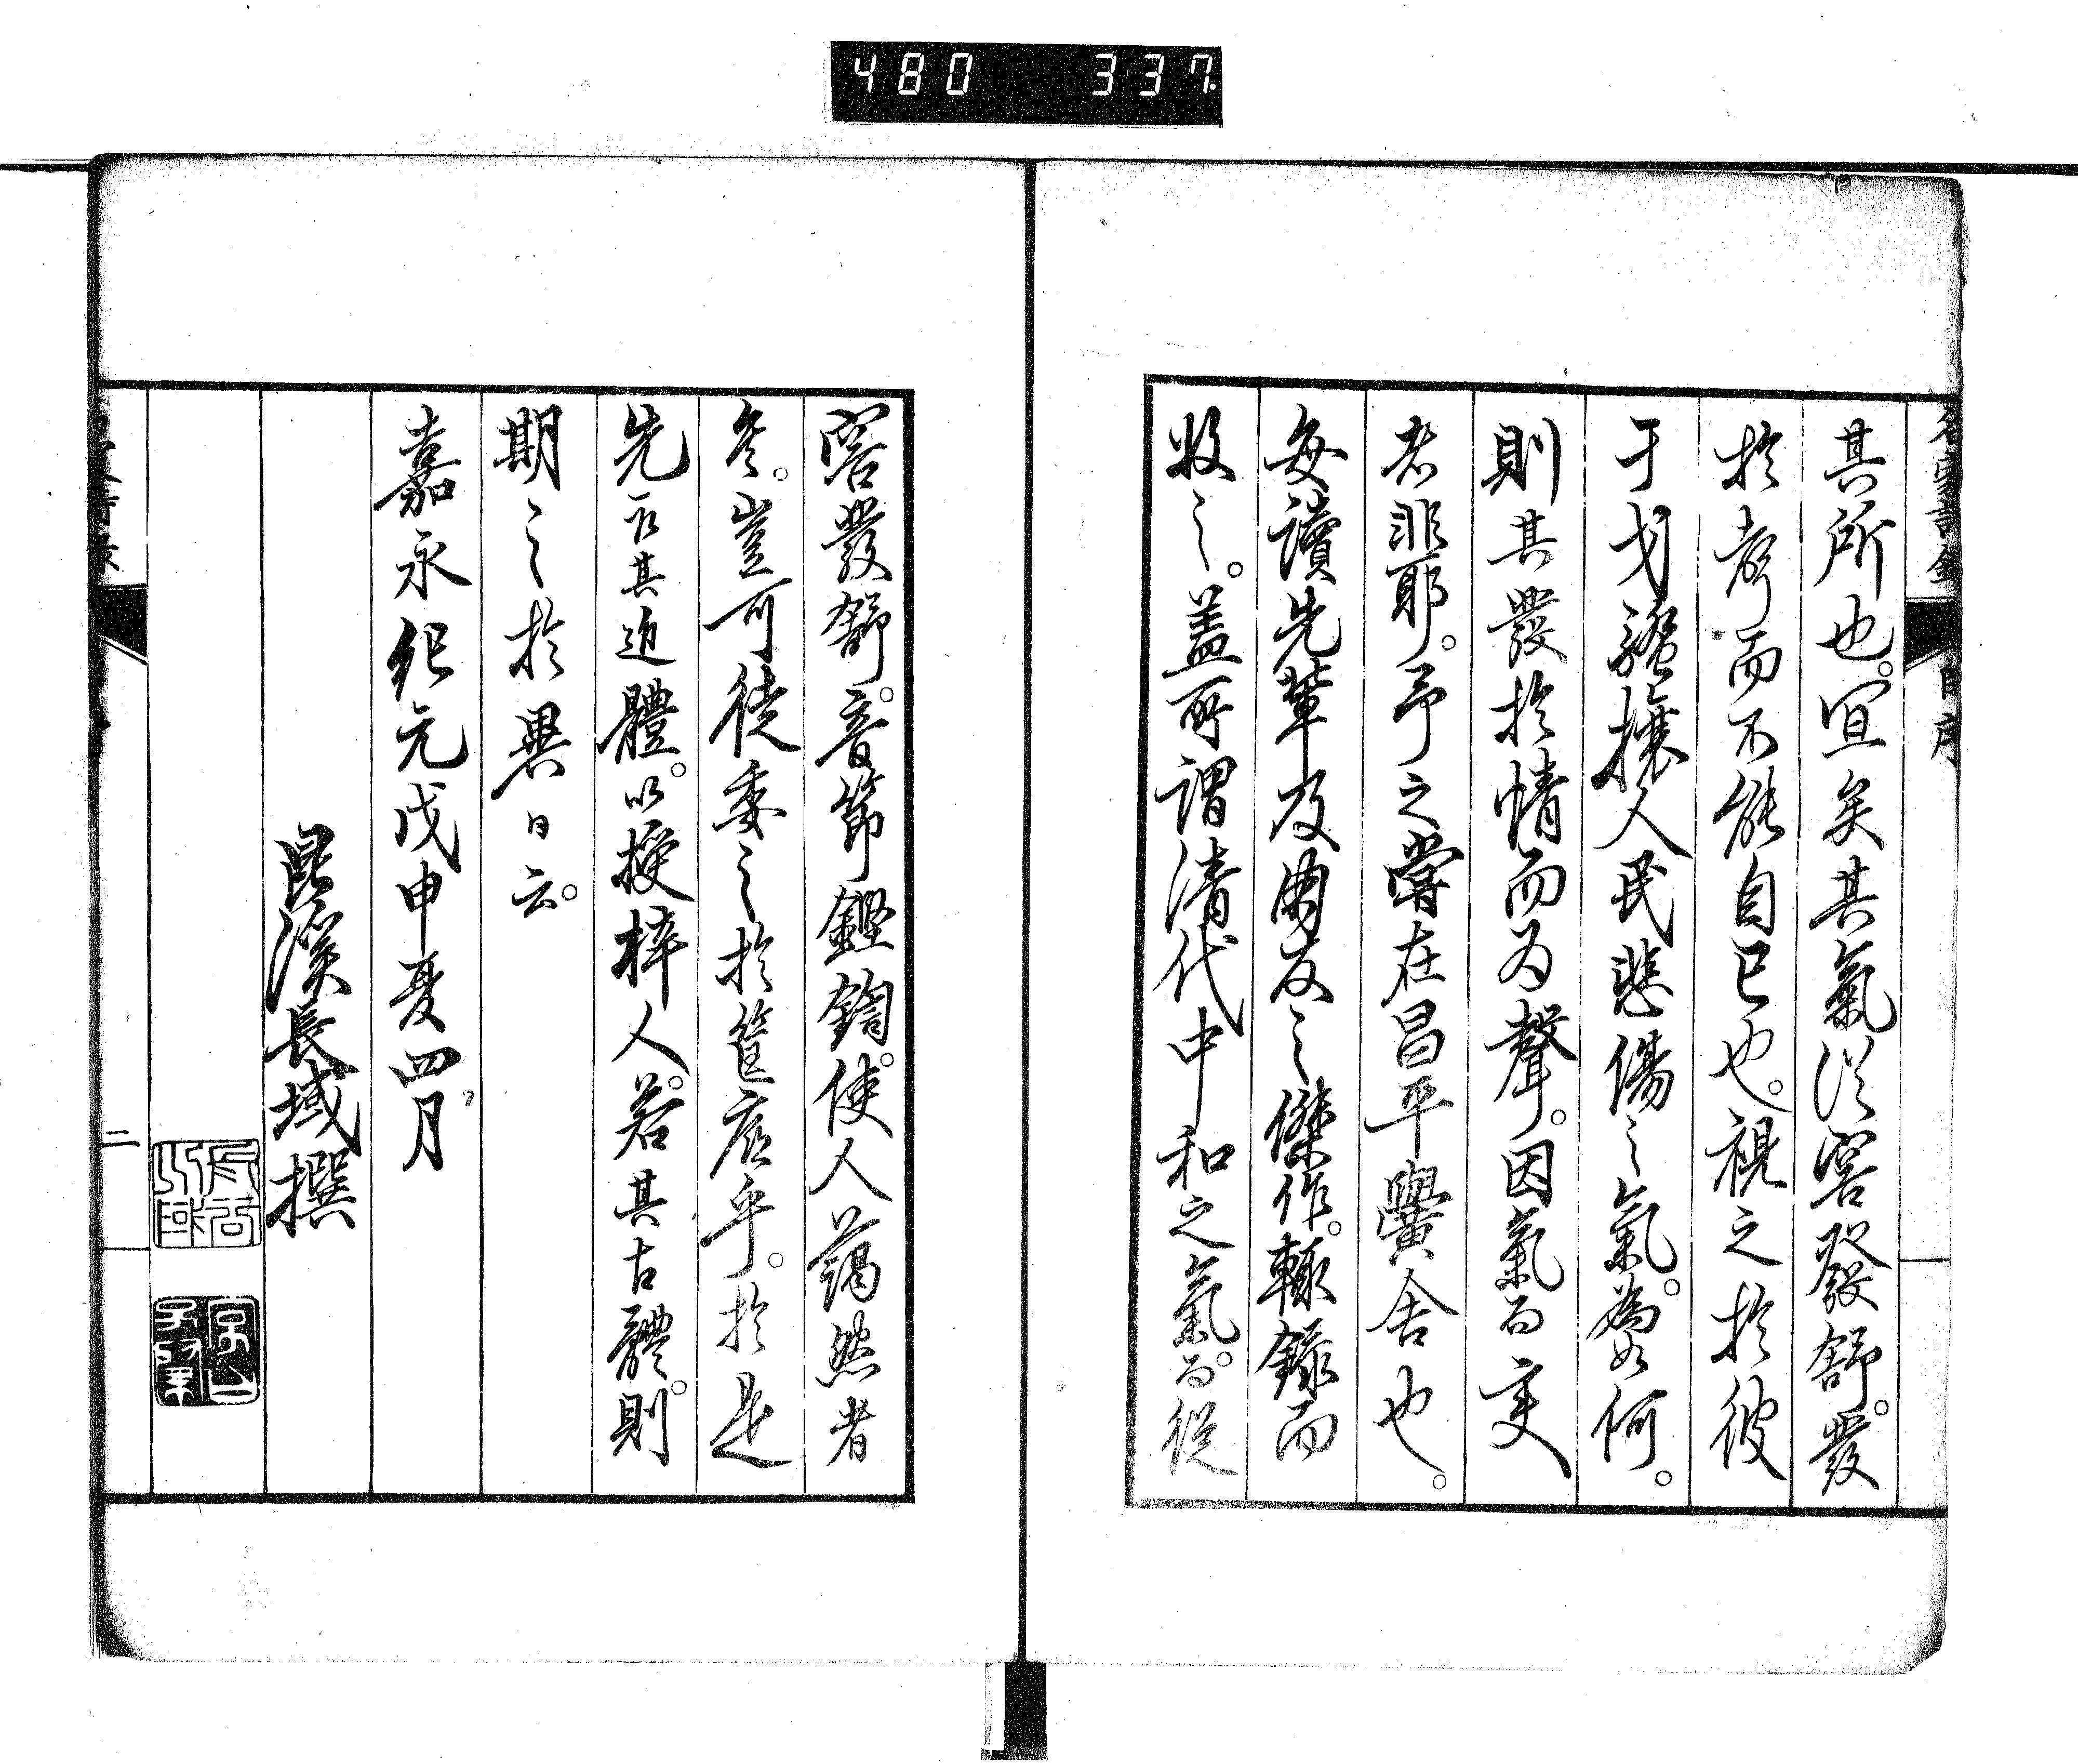 480 337
名家詩錄 自序
其所也。宜矣其氣從容發舒。發
於聲而不能自已也。視之於彼
干戈搶攘人民悲傷之氣。為如何。
則其發於情而為聲。因氣而変
者非耶。予之嘗在昌平黌舍也。
每讀先輩及朋友之傑作。輙錄而
收之。蓋所謂清代中和之氣。而從
容發舒。音節鏗鏘。使人藹然者
矣。豈可徒委之於筐底乎。於是
先取其近體。以授梓人。若其古體。則
期之於異日云。
嘉永紀元戊申夏四月
昆溪長域撰
二